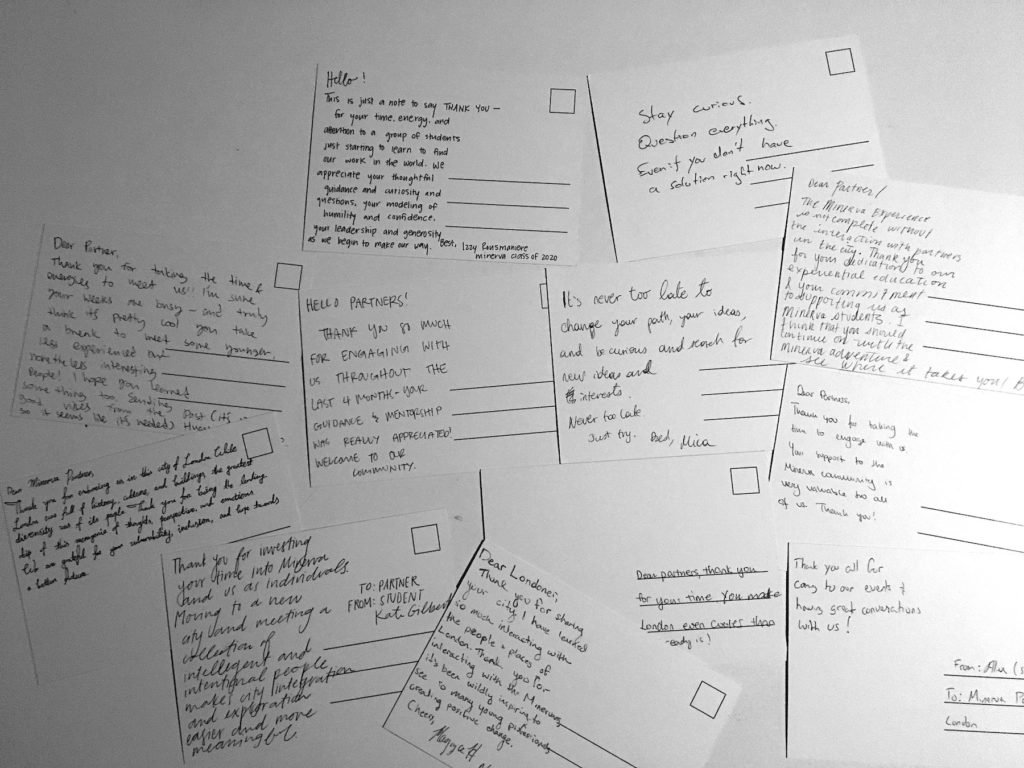 Hello!
This is just a note to say THANK YOU —
for your time, energy, and
attention to a group of students
just starting to learn to find
our work in the world. We
appreciate your thoughtful
guidance and curiosity and
questions, your modeling of
humility and confidence,
your leadership and generosity
as we begin to make our way. Best, Izzy
minerva class of 2020
Stay curious.
Question everything.
Even if you don't have
a solution right now.
Dear Partner,
Thank you for taking the time &
energies to meet us!! I'm sure
your weeks are busy — and truly
think it's pretty cool you take
a break to meet some younger,
less experienced but
none the less interesting
people! I hope you learned
some thing too. Sending
good vibes from the
so it seems, we
HELLO PARTNERS!
THANK YOU SO MUCH
FOR ENGAGING WITH
US THROUGHOUT THE
LAST 4 MONTHS - YOUR
GUIDANCE & MENTORSHIP
WAS REALLY APPRECIATED!
WELCOME TO OUR
COMMUNITY.
It's never too late to
change your path, your ideas,
and be curious and search for
new ideas and
interests.
Never too late.
Just try. Mica
Dear Partner!
The Minerva Experience
is incomplete without
the interaction with partners
in the city. Thank you
for your dedication to our
experiential education
& your commitment
to supporting us as
Minerva students. I
think that you should
continue on with the
Minerva adventure &
see where it takes you!
Dear Minerva Partners,
Thank you for us in this city of London. While
London was full of history, culture, and buildings, the greatest
diversity was of its people. Thank you for being the
of this of thoughts, perspective, and emotions
We are grateful for your vulnerability, inclusion, and hope towards
a better future.
Dear Partners,
Thank you for taking the
time to engage with us.
You support to the
Minerva community is
very valuable to all
of us. Thank you!
Thank you for investing
your time into Minerva
and us as individuals.
Moving to a new
city and meeting a
collection of
intellegent and
intentional people
makes city integration
and exploration
easier and more
meaningful.
TO: PARTNER
FROM: STUDENT
Kate Gilbert
Dear Londoner,
Thank you for sharing
your city! I have learned
so much interacting with
the people & places of
London. Thank you for
interacting with the Minervans,
it's been wildly inspiring to
see so many young
creating positive change.
Cheers,
Dear partners, thank you
for your time You make
London even cuter than
Thank you all for
to our events &
having great conversations
with us!
From: (s
To: Minerva
London